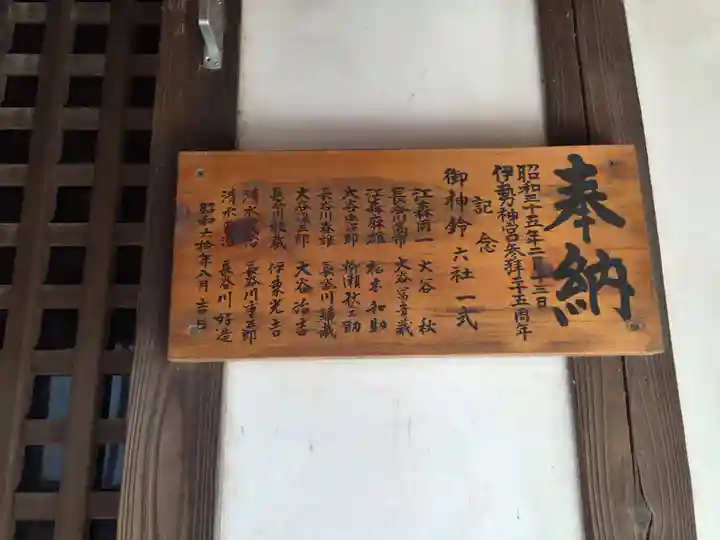 奉納
昭和三十五年二月三日
伊勢神宮参拝二十五周年
記念
御神鈴 六社 一式
江森岡一 大谷 秋
長谷川高市 大谷富貴蔵
江森麻雄 松本和助
大谷 治郎 柳瀬秋之助
長谷川春雄 長谷川 蔵
大谷 三郎 大谷治吉
長谷川敬蔵 伊東光吉
清水 治 長谷川幸五郎
清水 長谷川好造
昭和六拾年八月吉日